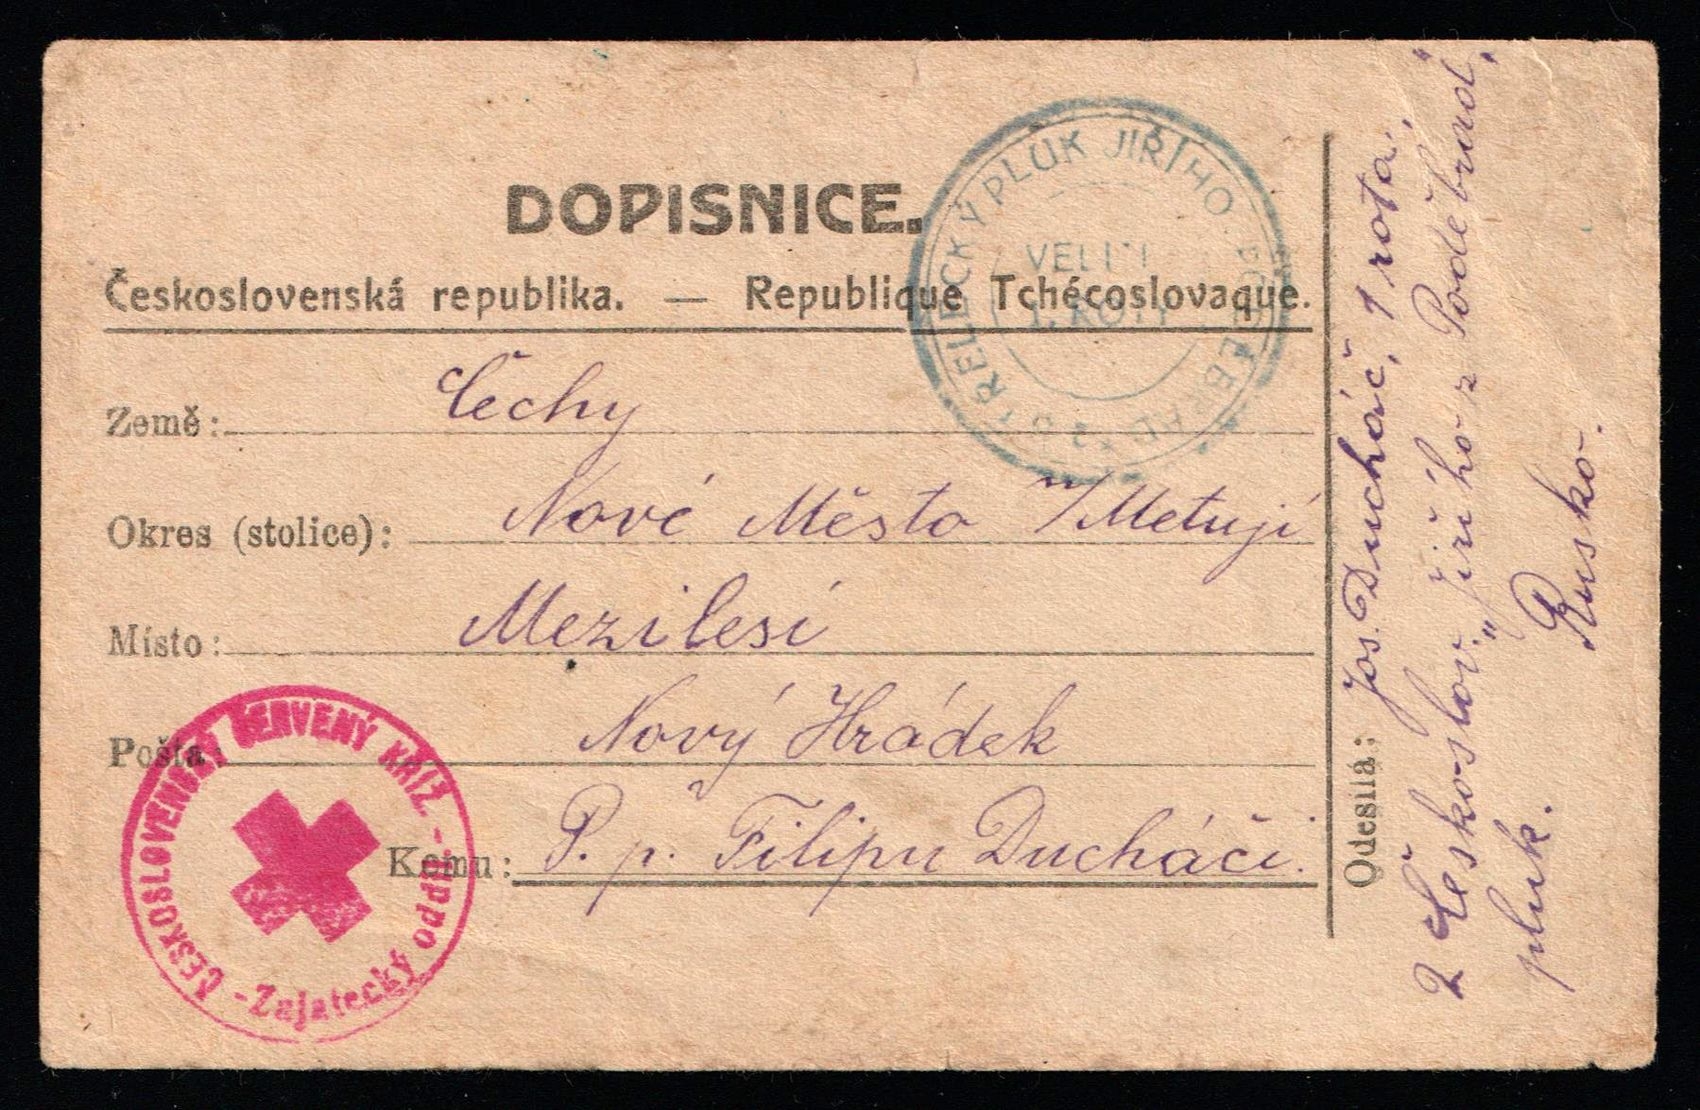 DOPISNICE.
Československá republika. — Republique Tchécoslovaque.
Země: Čechy
Okres (stolice): Nové Město n/Metují
Místo: Mezilesí
Pošta: Nový Hrádek
Komu: P. p. Filipu Ducháči.
Odesílá: Jos. Ducháč, 1 rota,
2 Českoslov. „Jiřího z Poděbrad“
pluk. Rusko.
STŘELECKÝ PLUK JIŘÍHO PODĚBRAD
ROTY
ČESKOSLOVENSKÝ ČERVENÝ KŘÍŽ. - Zajatecký odbor-